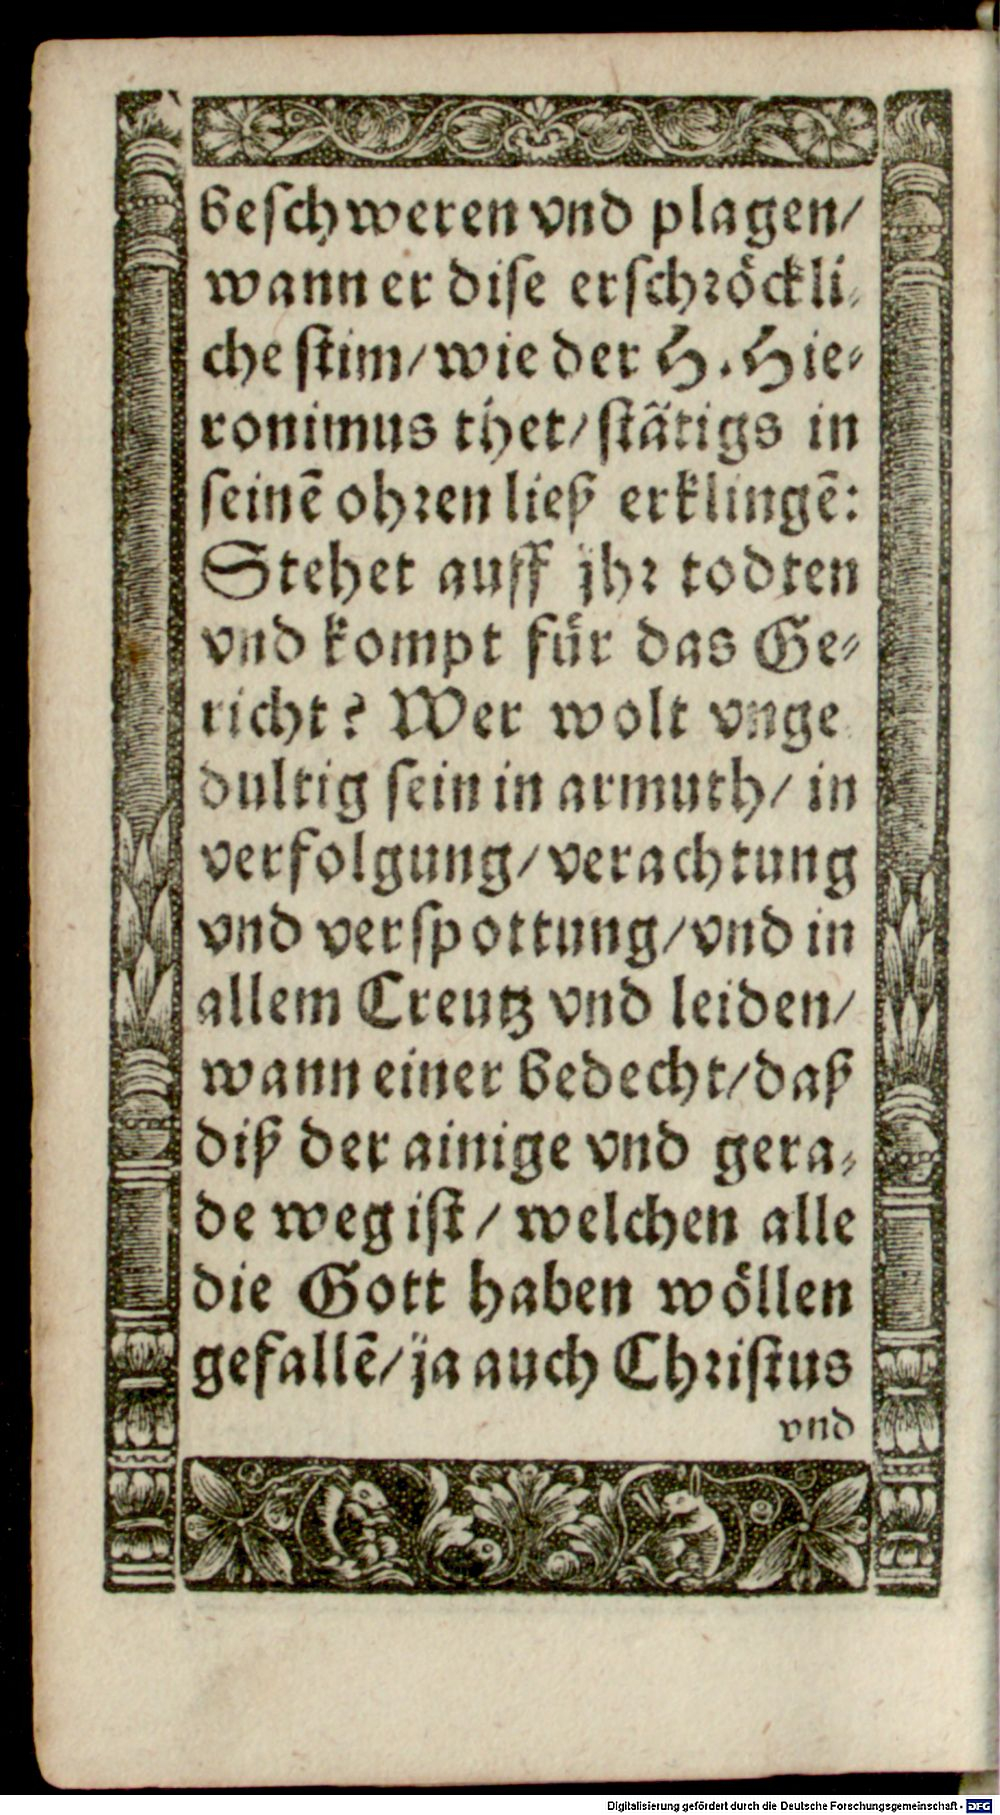 beschweren vnd plagen/
wann er dise erschröckli-
che stim/ wie der H. Hie-
ronimus thet/ stätigs in
seinē ohren ließ erklingē:
Stehet auff jhr todten
vnd kompt für das Ge-
richt? Wer wolt vnge
dultig sein in armuth/ in
verfolgung/ verachtung
vnd verspottung/ vnd in
allem Creutz vnd leiden/
wann einer bedecht/ daß
diß der ainige vnd gera-
de weg ist/ welchen alle
die Gott haben wöllen
gefallē/ ja auch Christus
vnd
Digitalisierung gefördert durch die Deutsche Forschungsgemeinschaft - DFG